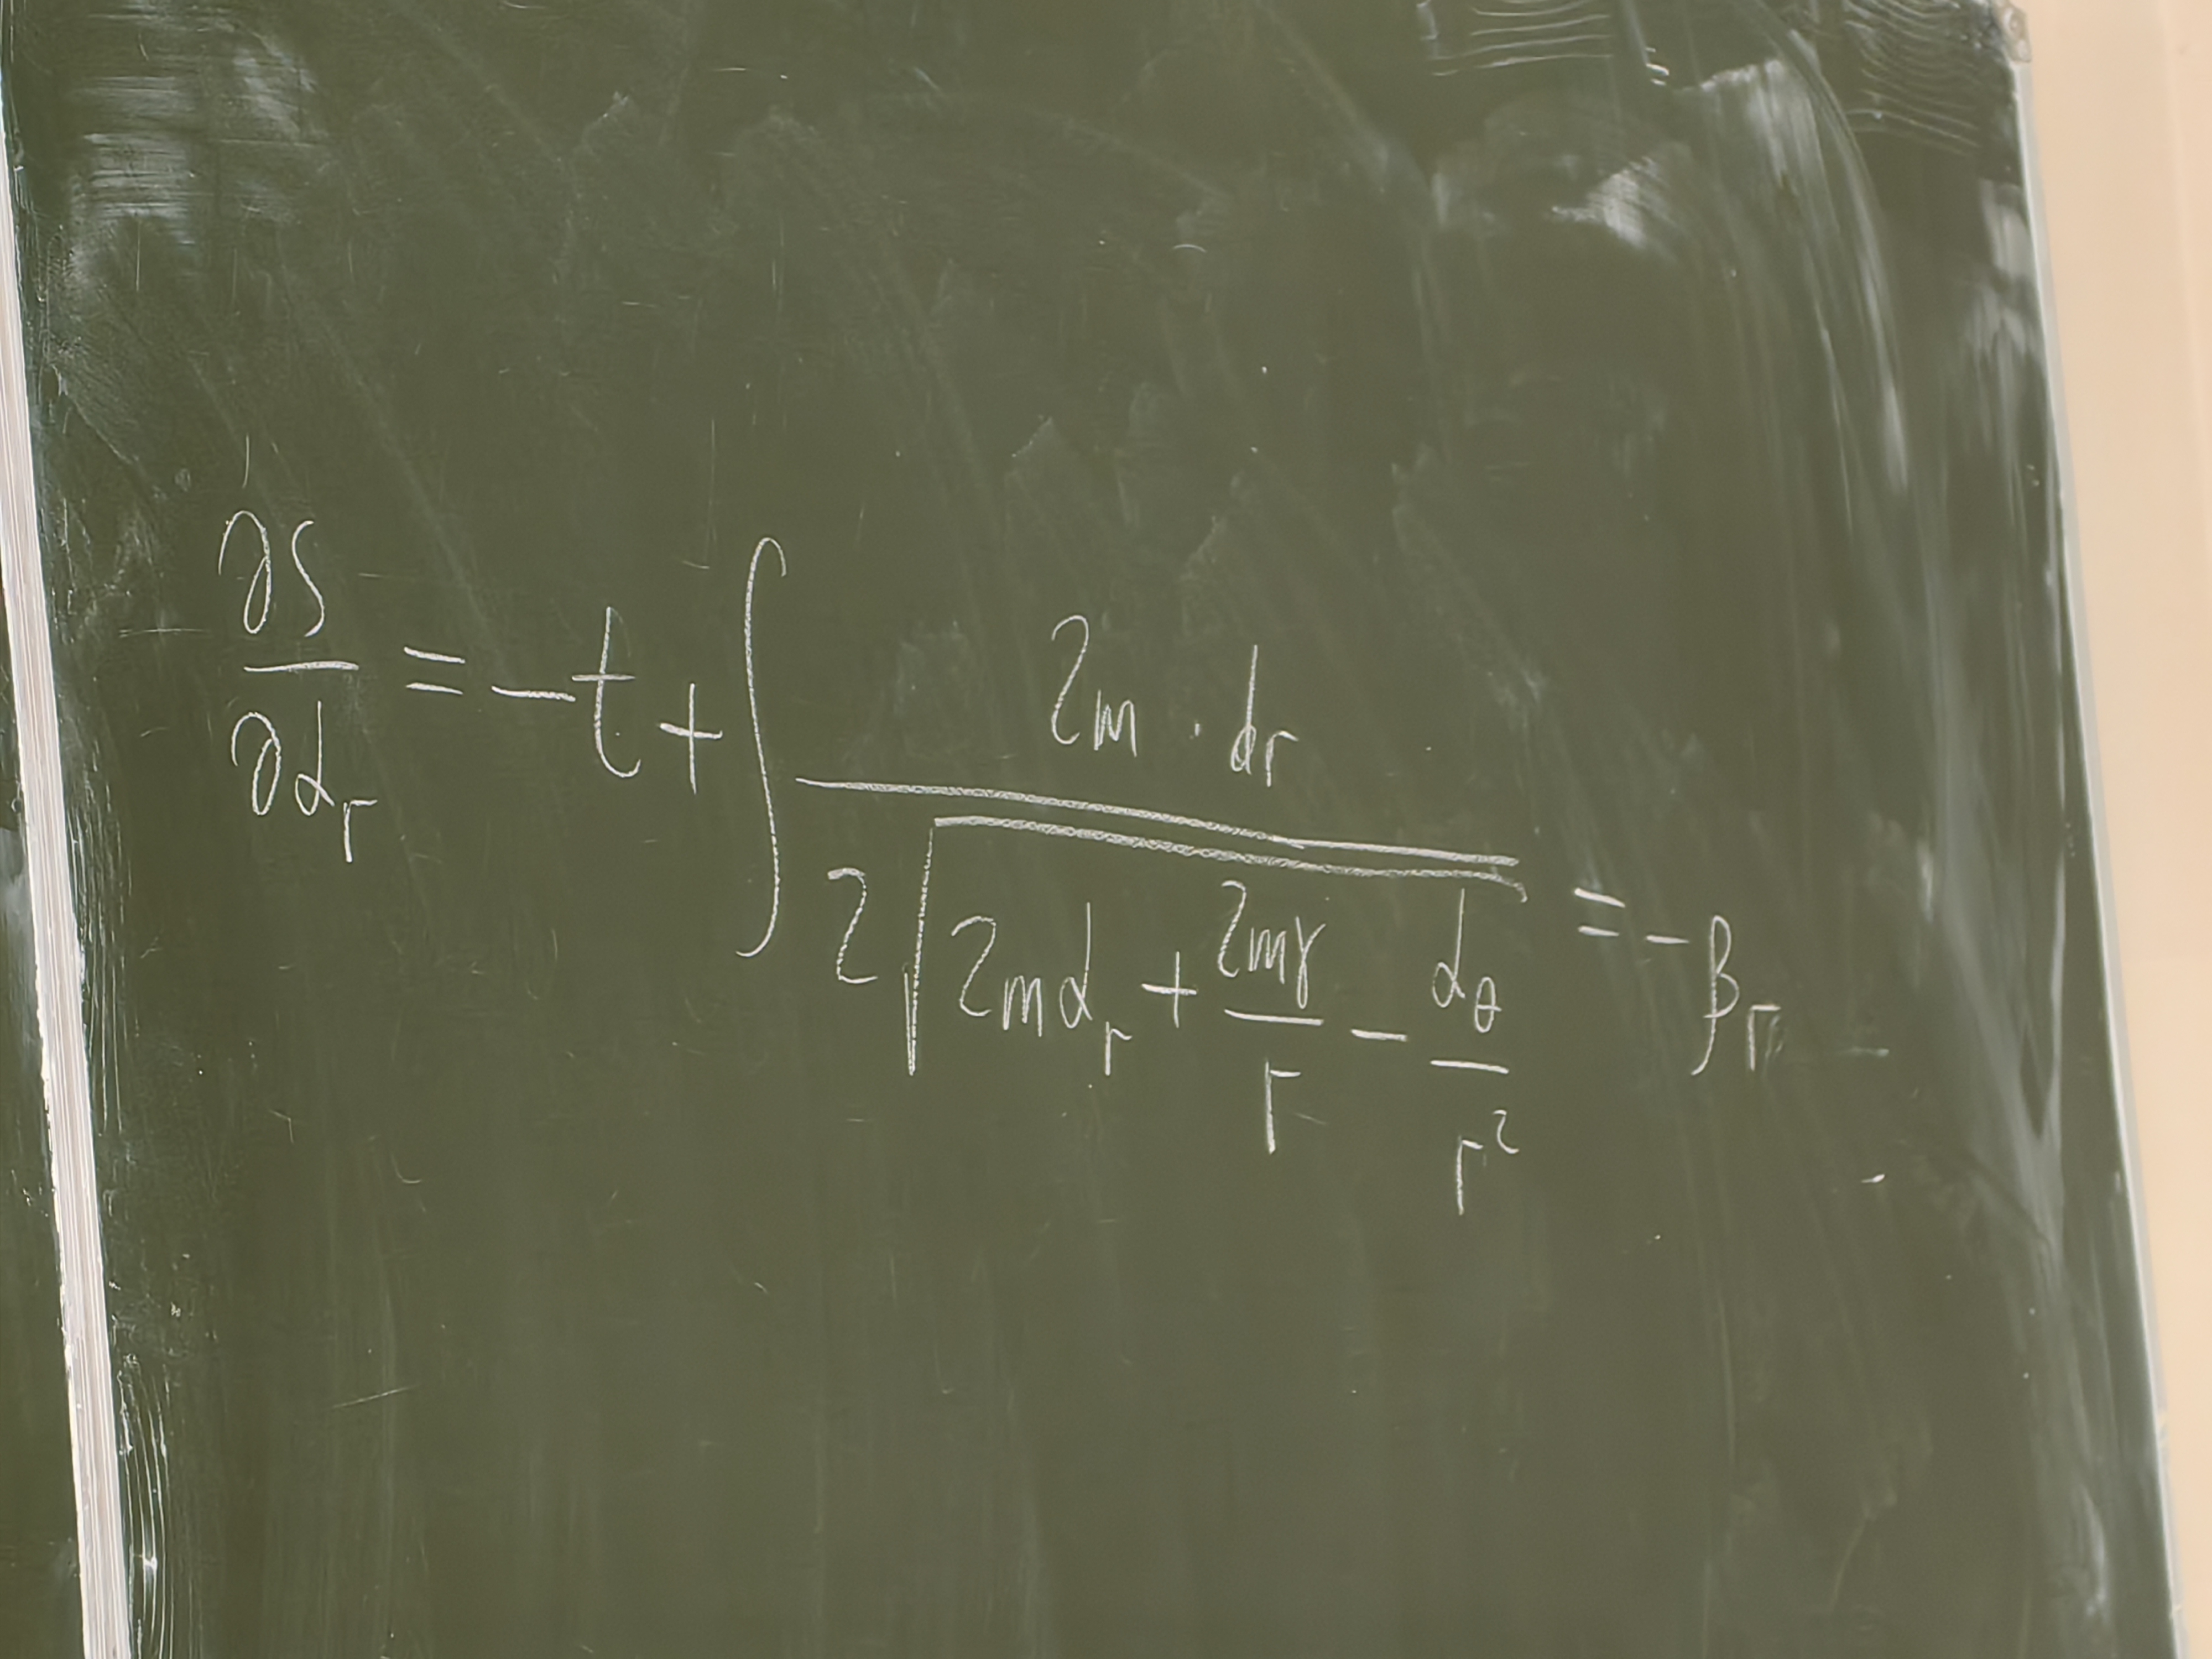 ∂S/∂α_r = -t + ∫ (2m · dr)/(2√(2mα_r + 2mγ/r - α_θ/r²)) = -β_r